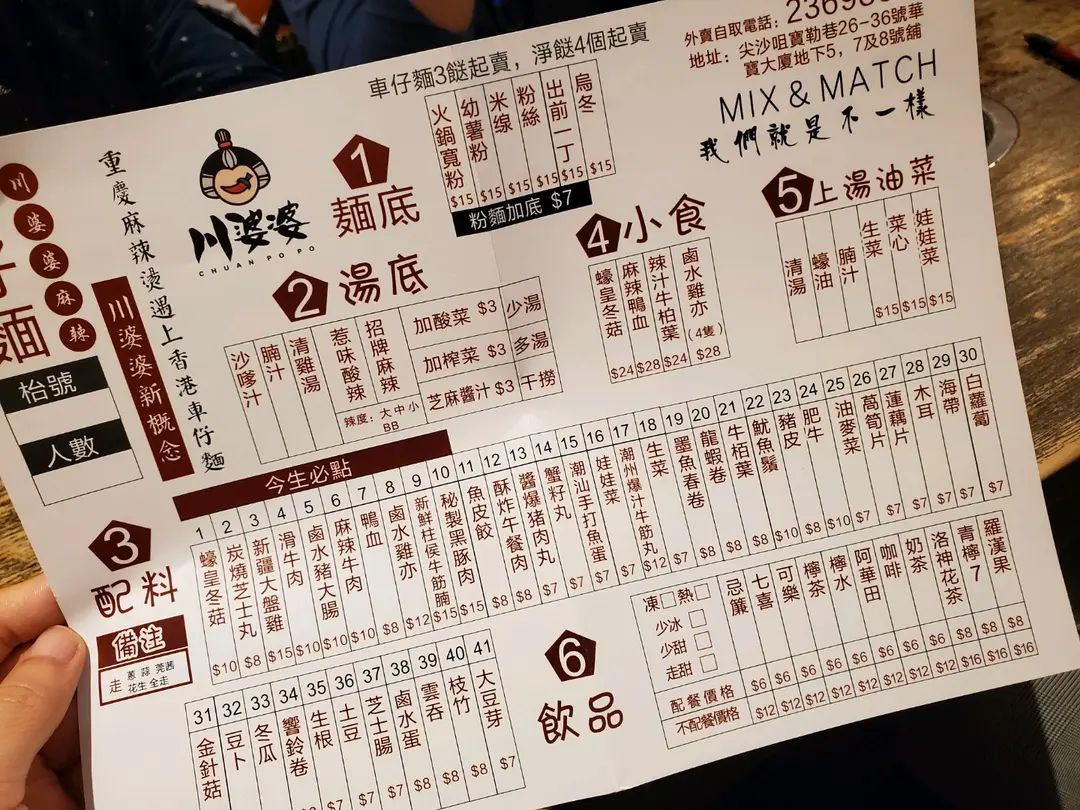 車仔麵3餸起賣，淨餸4個起賣
外賣自取電話：23698
地址：尖沙咀寶勒巷26-36號華
寶大廈地下5，7及8號舖
MIX & MATCH
我們就是不一樣
川婆婆麻辣
麵
重慶麻辣燙遇上香港車仔麵
川婆婆新概念
川婆婆
CHUAN PO PO
枱號
人數
1 麵底
火鍋寬粉 $15
幼薯粉 $15
米線 $15
粉絲 $15
出前一丁 $15
烏冬 $15
粉麵加底 $7
2 湯底
沙嗲汁
腩汁
清雞湯
惹味酸辣
招牌麻辣
辣度：大中小
BB
加酸菜 $3
加榨菜 $3
芝麻醬汁 $3
少湯
多湯
干撈
4 小食
蠔皇冬菇 $24
麻辣鴨血 $28
辣汁牛柏葉 $24
鹵水雞亦(4隻) $28
5 上湯油菜
清湯
蠔油
腩汁
生菜 $15
菜心 $15
娃娃菜 $15
3 配料
備注
走 蔥 蒜 莞茜
花生 全走
今生必點
1 蠔皇冬菇 $10
2 炭燒芝士丸 $8
3 新疆大盤雞 $15
4 滑牛肉 $10
5 鹵水豬大腸 $10
6 麻辣牛肉 $10
7 鴨血 $8
8 鹵水雞亦 $12
9 新鮮柱侯牛筋腩 $15
10 秘製黑豚肉 $15
11 魚皮餃 $8
12 酥炸牛餐肉 $8
13 醬爆豬肉丸 $7
14 蟹籽丸 $7
15 潮汕手打魚蛋 $7
16 娃娃菜 $7
17 潮州爆汁牛筋丸 $12
18 生菜 $7
19 墨魚春卷 $8
20 龍蝦卷 $8
21 牛栢葉 $8
22 魷魚鬚 $10
23 豬皮 $8
24 肥牛 $10
25 油麥菜 $7
26 萵筍片 $7
27 蓮藕片 $7
28 木耳 $7
29 海帶 $7
30 白蘿蔔 $7
31 金針菇
32 豆卜
33 冬瓜
34 響鈴卷
35 生根
36 土豆 $7
37 芝士腸 $7
38 鹵水蛋 $8
39 雲吞 $8
40 枝竹 $8
41 大豆芽 $7
6 飲品
凍 熱
少冰
少甜
走甜
忌簾
七喜
可樂
檸茶
檸水
阿華田
咖啡
奶茶
洛神花茶
青檸7
羅漢果
配餐價格 $6 $6 $6 $6 $6 $6 $6 $6 $8 $8 $8
不配餐價格 $12 $12 $12 $12 $12 $12 $12 $12 $16 $16 $16